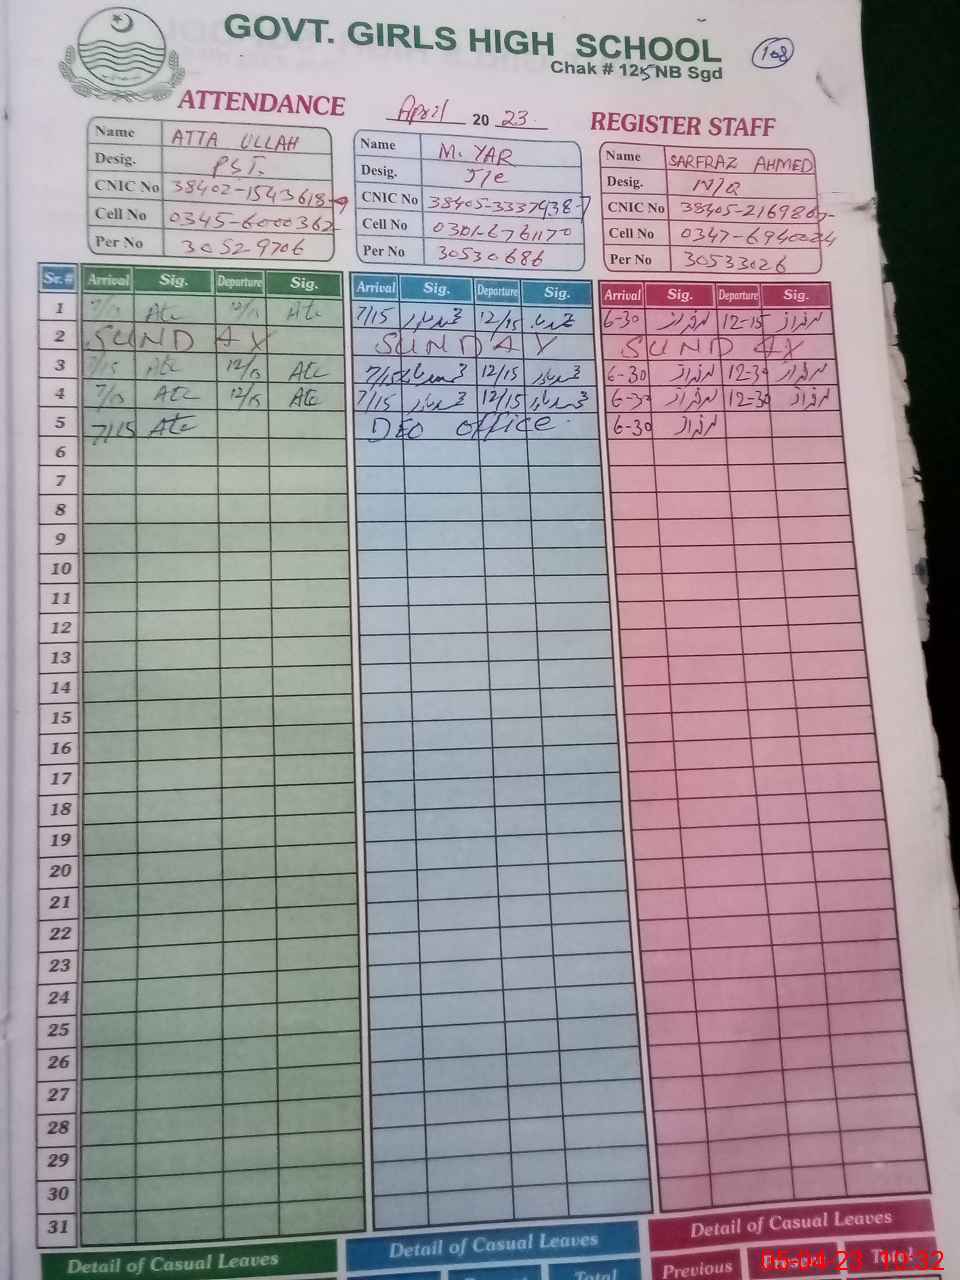 GOVT. GIRLS HIGH SCHOOL
108
Chak # 125 NB Sgd
ATTENDANCE April 2023 REGISTER STAFF
Name ATTA ULLAH
Desig. PST.
CNIC No 38402-1543618-9
Cell No 0345-6000362
Per No 3052-9706
Name M. YAR
Desig. J/e
CNIC No 38405-3337938-7
Cell No 0301-6761170
Per No 30530686
Name SARFRAZ AHMED
Desig. N/Q
CNIC No 38405-2169867-
Cell No 0347-6940024
Per No 30533026
Sr.# Arrival Sig. Departure Sig. Arrival Sig. Departure Sig. Arrival Sig. Departure Sig.
1 7/15 Ate 12/15 Ate 7/15 محمد یار 12/15 محمد یار 6-30 سرفراز 12-15 سرفراز
2 SUNDAY SUNDAY SUNDAY
3 7/15 Ate 12/15 Ate 7/15 محمد یار 12/15 محمد یار 6-30 سرفراز 12-30 سرفراز
4 7/15 Ate 12/15 Ate 7/15 محمد یار 12/15 محمد یار 6-30 سرفراز 12-30 سرفراز
5 7/15 Ate DEO office 6-30 سرفراز
6
7
8
9
10
11
12
13
14
15
16
17
18
19
20
21
22
23
24
25
26
27
28
29
30
31
Detail of Casual Leaves Detail of Casual Leaves Detail of Casual Leaves
Total Previous Present Total
05-04-23 10:32